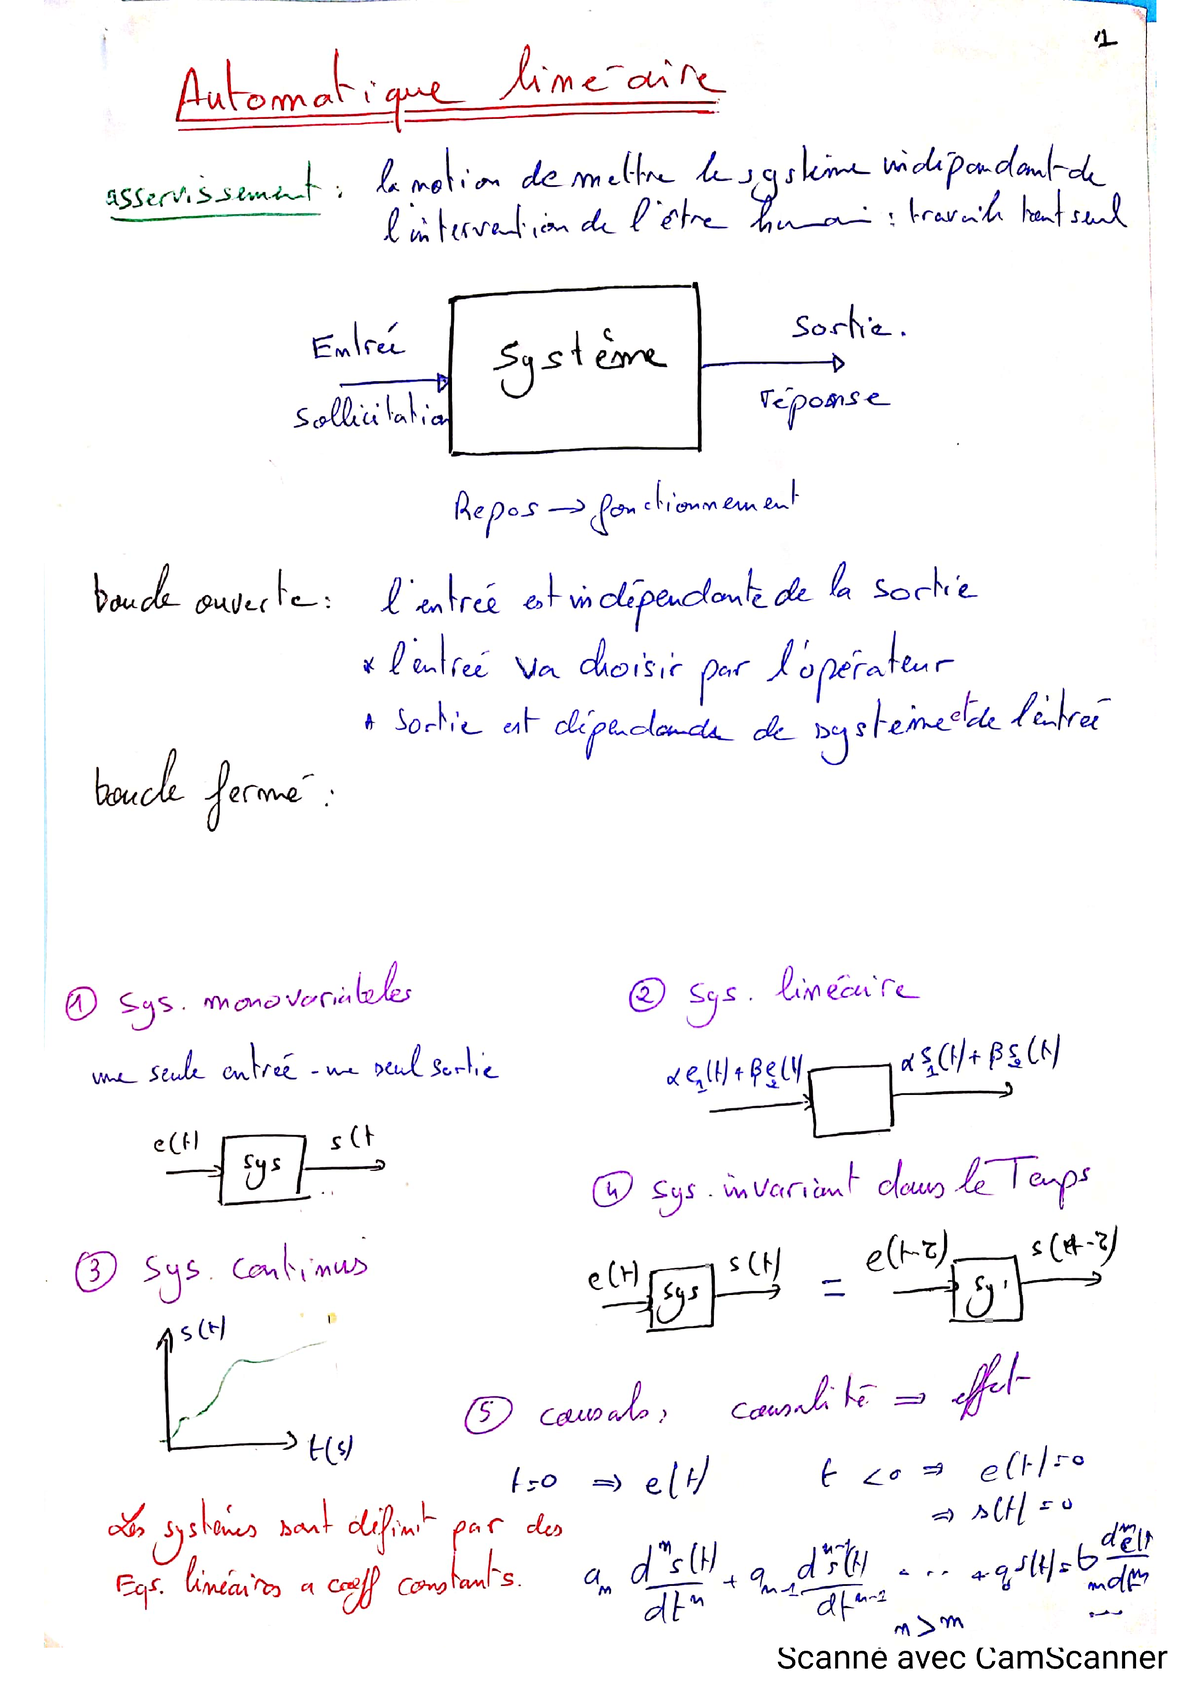 1
Automatique linéaire
asservissement : la notion de mettre le système indépandant de
l'intervention de l'être humai : travail tout seul
Entrée
Sollicitation
Système
Sortie.
réponse
Repos → fonctionnement
boucle ouverte : l'entrée est indépendante de la sortie
* l'entreé va choisir par l'opérateur
* Sortie est dépendande de système et de l'entreé
boucle fermé :
① Sys. monovariables
une seule entreé - une seul sortie
e(t) sys s(t
② Sys. linéaire
αe₁(t)+βe₂(t) αs₁(t)+βs₂(t)
③ Sys. continus
s(t)
t(s)
④ Sys. invariant dans le Temps
e(t) sys s(t) = e(t-τ) sy s(t-τ)
⑤ causals, causalité ⇒ effet
t=0 ⇒ e(t) t<0 ⇒ e(t)=0
⇒ s(t)=0
Les systèmes sont définit par des
Eqs. linéaires a coeff constants.
aₙ dⁿs(t)/dtⁿ + aₙ₋₁ dⁿ⁻¹s(t)/dtⁿ⁻¹ .... + a₀s(t) = bₘ dᵐe(t)/dtᵐ ...
n>m
Scanné avec CamScanner